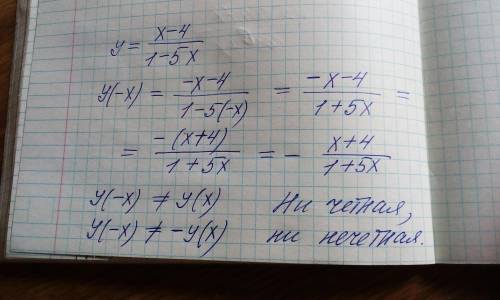 y = (x-4)/(1-5x)
y(-x) = (-x-4)/(1-5(-x)) = (-x-4)/(1+5x) =
= (-(x+4))/(1+5x) = - (x+4)/(1+5x)
y(-x) ≠ y(x) Ни четная,
y(-x) ≠ -y(x) ни нечетная.